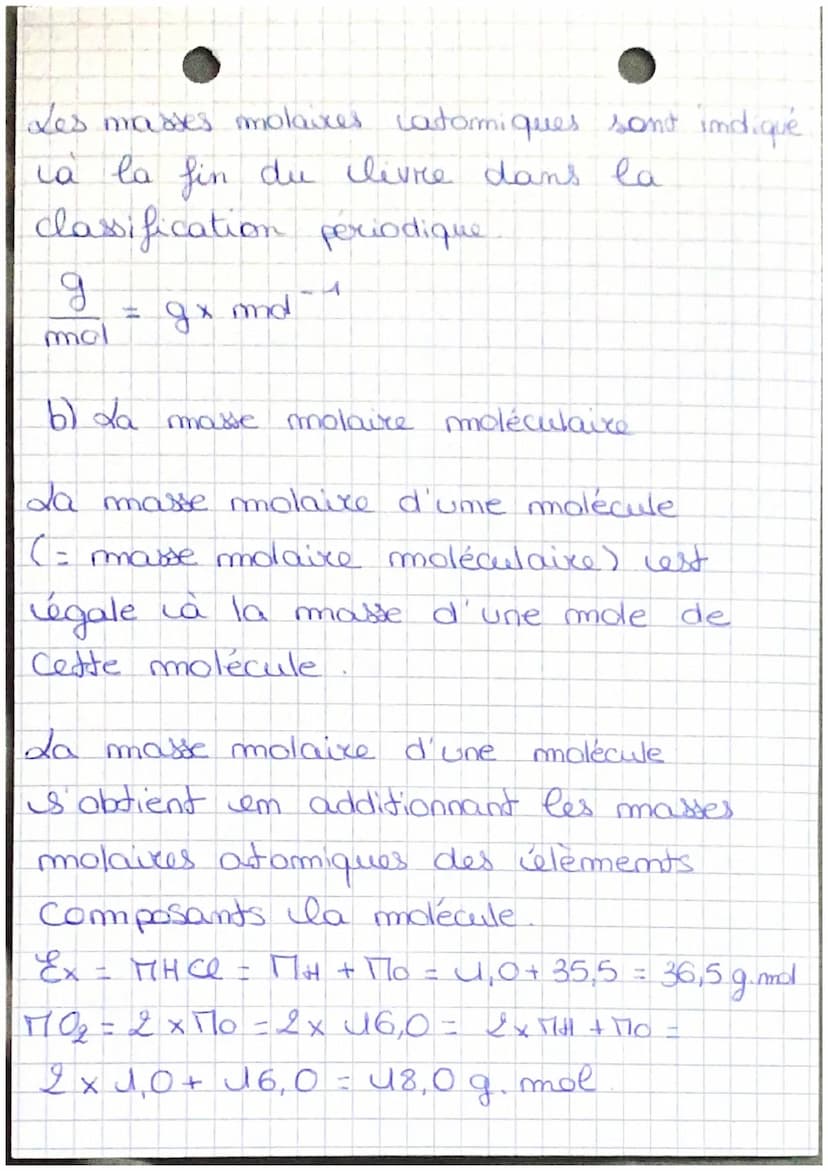 Les masses molaires atomiques sont indiqué
à la fin du livre dans la
classification périodique.
g/mol = g x mol⁻¹
b) La masse molaire moléculaire
La masse molaire d'une molécule
(= masse molaire moléculaire) est
égale à la masse d'une mole de
cette molécule.
La masse molaire d'une molécule
s'obtient en additionnant les masses
molaires atomiques des élèments
composants la molécule.
Ex = MHCl = MH + MO = 1,0 + 35,5 = 36,5 g.mol
MO₂ = 2 x MO = 2 x 16,0 = 2 x MH + MO =
2 x 1,0 + 16,0 = 18,0 g.mol